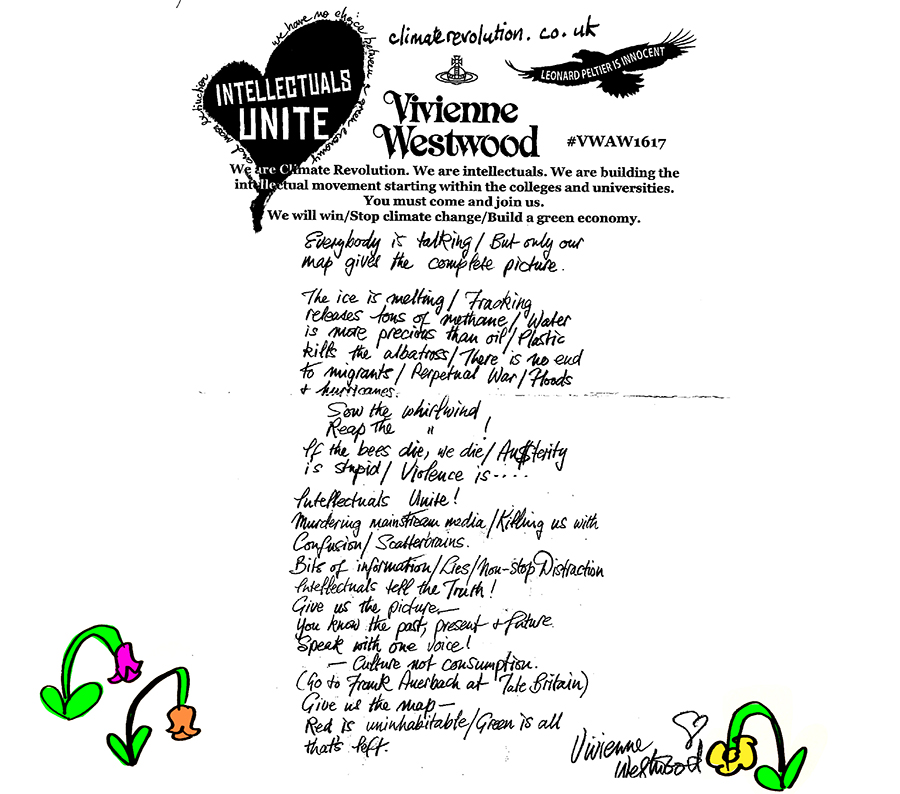 we have no choice between a green economy and mass extinction
INTELLECTUALS
UNITE
climaterevolution.co.uk
LEONARD PELTIER IS INNOCENT
Vivienne
Westwood
#VWAW1617
We are Climate Revolution. We are intellectuals. We are building the
intellectual movement starting within the colleges and universities.
You must come and join us.
We will win/Stop climate change/Build a green economy.
Everybody is talking/ But only our
map gives the complete picture.
The ice is melting/ Fracking
releases tons of methane/ Water
is more precious than oil/ Plastic
kills the albatross/ There is no end
to migrants/ Perpetual War/ Floods
+ hurricanes.
Sow the whirlwind
Reap the " !
If the bees die, we die/ Au$terity
is stupid/ Violence is ....
Intellectuals Unite!
Murdering mainstream media/Killing us with
Confusion/ Scatterbrains.
Bits of information/Lies/Non-stop Distraction
Intellectuals tell the Truth!
Give us the picture—
You know the past, present + future.
Speak with one voice!
— Culture not consumption.
(Go to Frank Auerbach at Tate Britain)
Give us the map—
Red is uninhabitable/Green is all
that's left.
Vivienne
Westwood